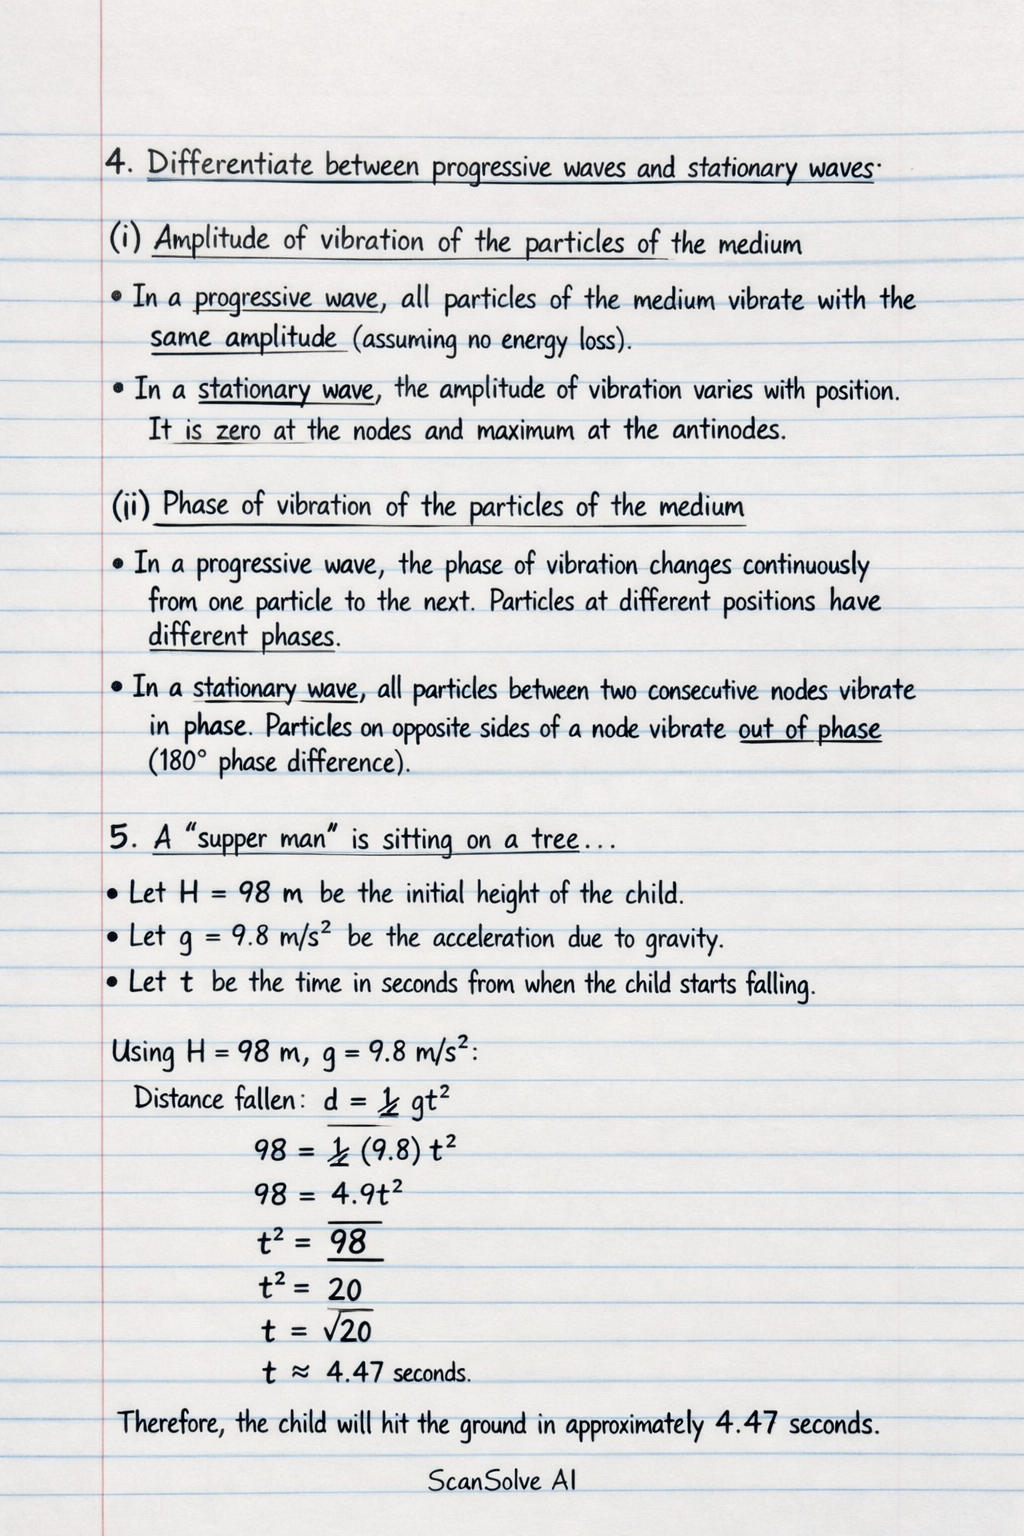 4. Differentiate between progressive waves and stationary waves.
(i) Amplitude of vibration of the particles of the medium
• In a progressive wave, all particles of the medium vibrate with the
same amplitude (assuming no energy loss).
• In a stationary wave, the amplitude of vibration varies with position.
It is zero at the nodes and maximum at the antinodes.
(ii) Phase of vibration of the particles of the medium
• In a progressive wave, the phase of vibration changes continuously
from one particle to the next. Particles at different positions have
different phases.
• In a stationary wave, all particles between two consecutive nodes vibrate
in phase. Particles on opposite sides of a node vibrate out of phase
(180° phase difference).
5. A "supper man" is sitting on a tree...
• Let H = 98 m be the initial height of the child.
• Let g = 9.8 m/s² be the acceleration due to gravity.
• Let t be the time in seconds from when the child starts falling.
Using H = 98 m, g = 9.8 m/s²:
Distance fallen: d = ½ gt²
98 = ½ (9.8) t²
98 = 4.9t²
t² = 98
t² = 20
t = √20
t ≈ 4.47 seconds.
Therefore, the child will hit the ground in approximately 4.47 seconds.
ScanSolve AI